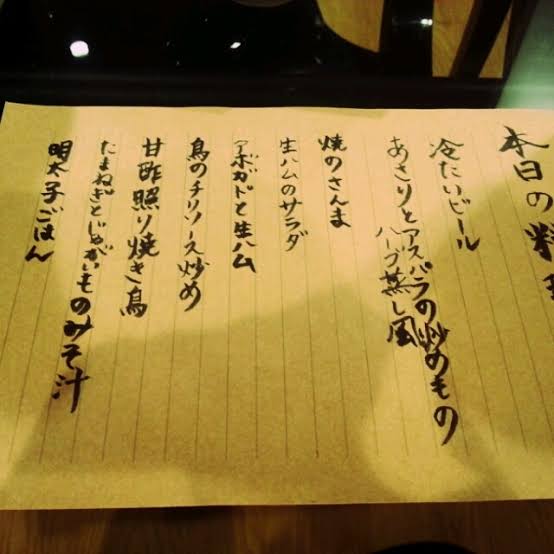 本日の料
冷たいビール
あさりとアスパラの炒めもの
ハーブ蒸し風
焼のさんま
生ハムのサラダ
アボガドと生ハム
鳥のチリソース炒め
甘酢照り焼き鳥
たまねぎとじゃがいものみそ汁
明太子ごはん